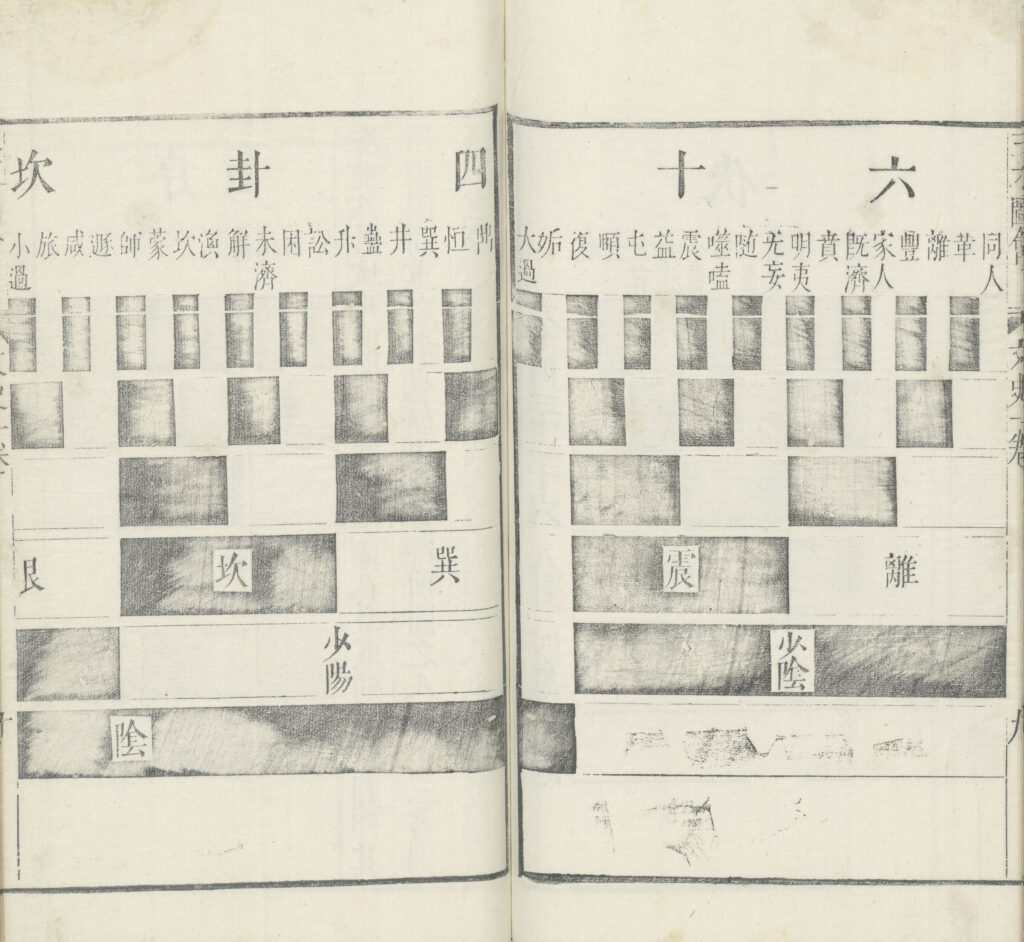 三才圖會 文史一卷 九
六十四卦坎
同人 革 離 豐 家人 既濟 賁 明夷 无妄 随 噬嗑 震 益 屯 頤 復 姤 大過 鼎 恒 巽 井 蠱 升 訟 困 未濟 解 渙 坎 蒙 師 遯 咸 旅 小過
離 震 巽 坎 艮
少陰 少陽
陰